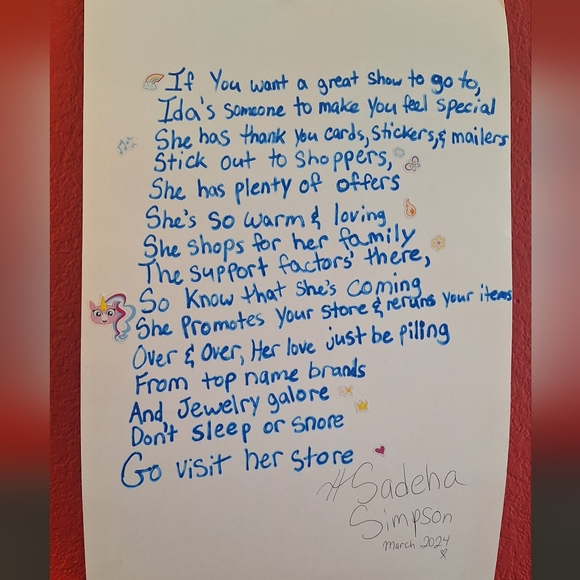 If You want a great show to go to,
Ida's someone to make you feel special
She has thank you cards, stickers, & mailers
Stick out to shoppers,
She has plenty of offers
She's so warm & loving
She shops for her family
The support factors' there,
So know that she's coming
She Promotes your store & reruns your items
Over & Over, Her love just be piling
From top name brands
And Jewelry galore
Don't sleep or snore
Go visit her store
#Sadeha
Simpson
March 2024